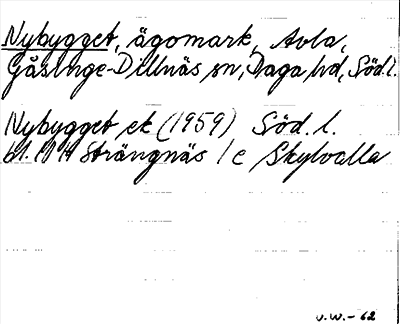 Nybygget, ägomark, Avla,
Gåsinge-Dillnäs sn, Daga hd, Söd.l.
Nybygget ek (1959) Söd. l.
bl. 10 H Strängnäs / c Skylvalla
V.W.-62